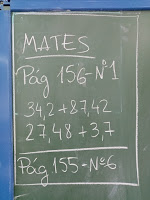 MATES
Pág 156-Nº1
34,2+87,42
27,48+3,7
Pág 155-Nº6